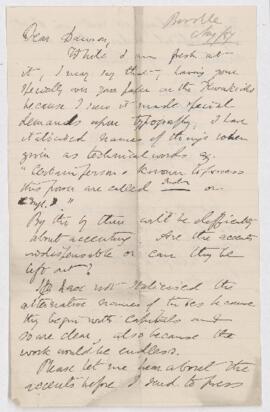 Dear Dawson,
While I am fresh at
it, I may say that, having gone
specially over your paper on the Kwakiools
because I saw it made special
demands upon typography, I have
italicised names of things when
given as technical words eg.
"Certain persons known to possess
this power are called or
By the by there will be difficulty
about accenting Are the accents
indispensable or can they be
left out?
I have not italicised the
alternative names of tribes because
they begin with capitals and
so are clear, also because the
work would be endless.
Please let me hear about the
accents before I send to press